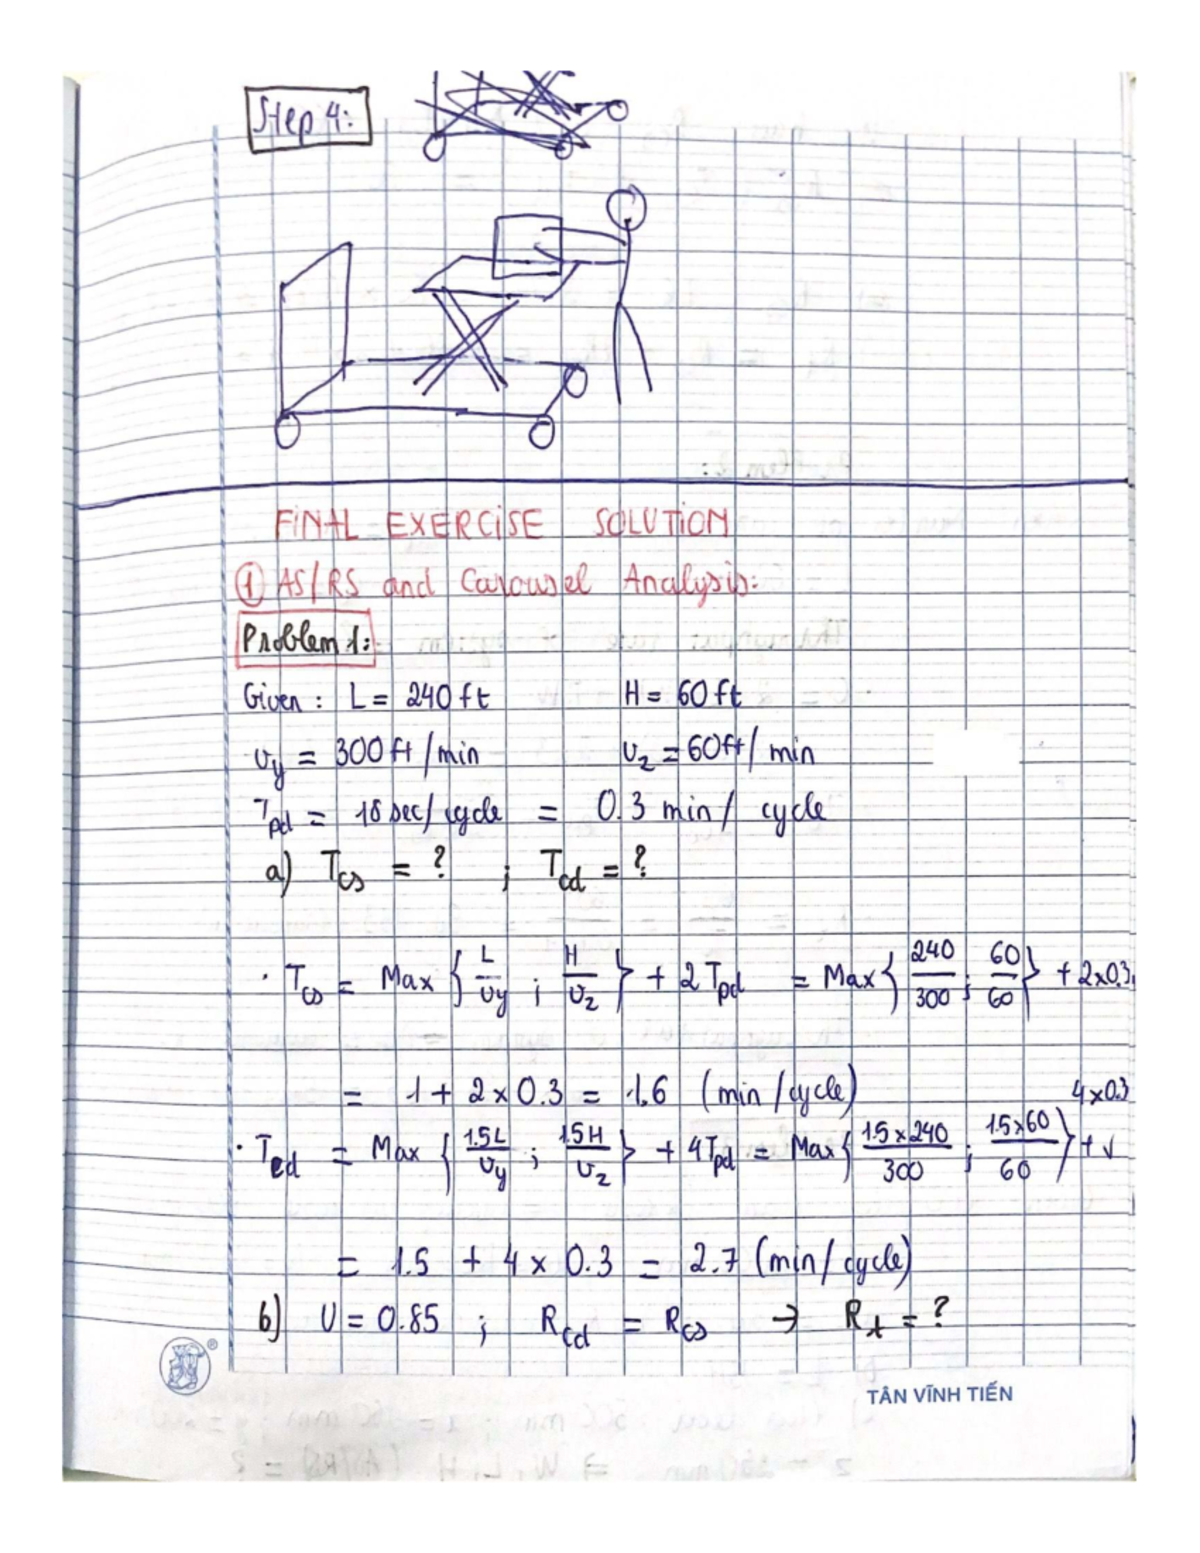 Step 4:
FINAL EXERCISE SOLUTION
① AS/RS and Carousel Analysis:
Problem 1:
Given : L = 240 ft H = 60 ft
υy = 300 ft / min υz = 60 ft / min
Tpd = 18 sec / cycle = 0.3 min / cycle
a) Tcs = ? ; Tcd = ?
· Tcs = Max { L/υy ; H/υz } + 2 Tpd = Max { 240/300 ; 60/60 } + 2x0.3
= 1 + 2 x 0.3 = 1.6 (min / cycle)
4x0.3
· Tcd = Max { 1.5L/υy ; 1.5H/υz } + 4Tpd = Max { 1.5 x 240/300 ; 1.5x60/60 } + √
= 1.5 + 4 x 0.3 = 2.7 (min / cycle)
b) U = 0.85 ; Rcd = Rcs → Rt = ?
®
TÂN VĨNH TIẾN